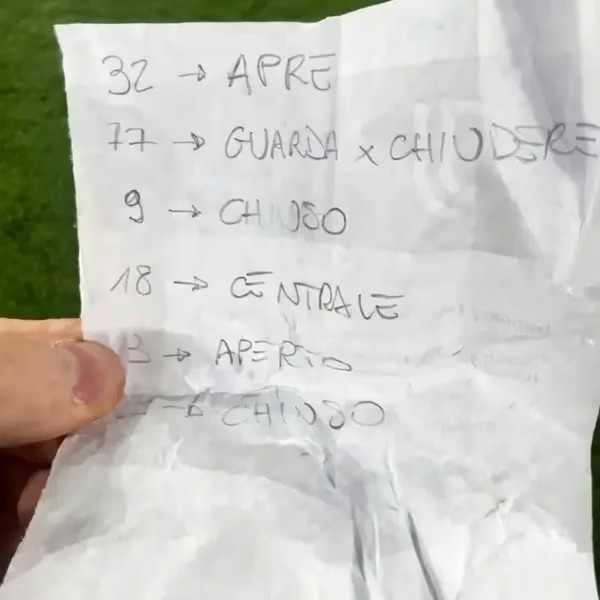 32 → APRE
77 → GUARDA x CHIUDERE
9 → CHIUSO
18 → CENTRALE
3 → APERTO
→ CHIUSO